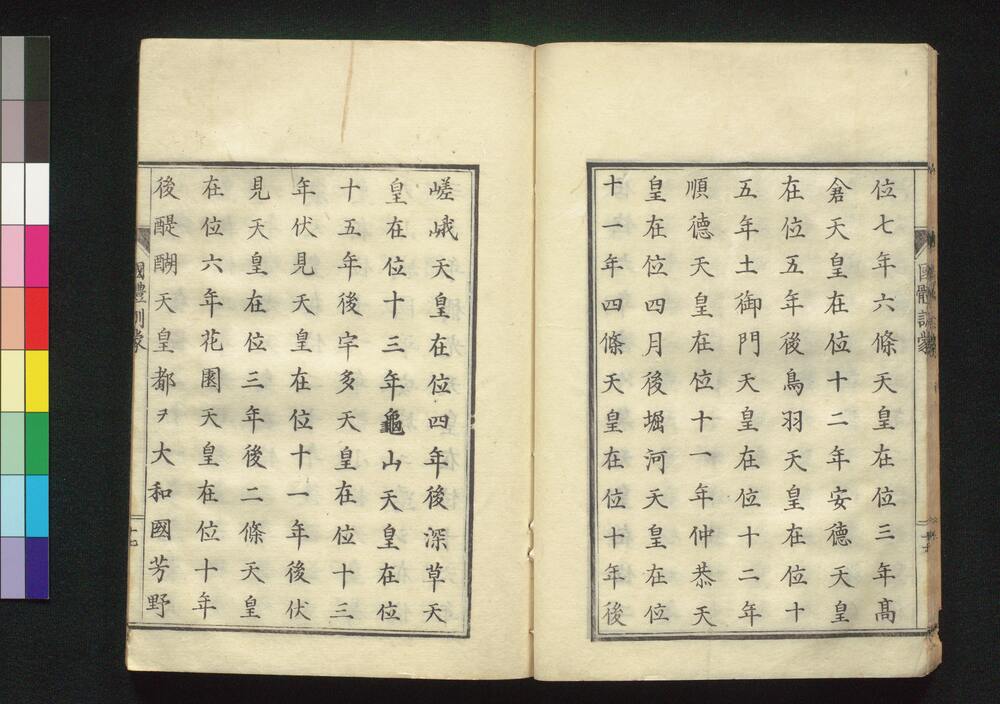 位七年六條天皇在位三年高
倉天皇在位十二年安德天皇
在位五年後鳥羽天皇在位十
五年土御門天皇在位十二年
順德天皇在位十一年仲恭天
皇在位四月後堀河天皇在位
十一年四條天皇在位十年後
嵯峨天皇在位四年後深草天
皇在位十三年龜山天皇在位
十五年後宇多天皇在位十三
年伏見天皇在位十一年後伏
見天皇在位三年後二條天皇
在位六年花園天皇在位十年
後醍醐天皇都ヲ大和國芳野
國體訓蒙